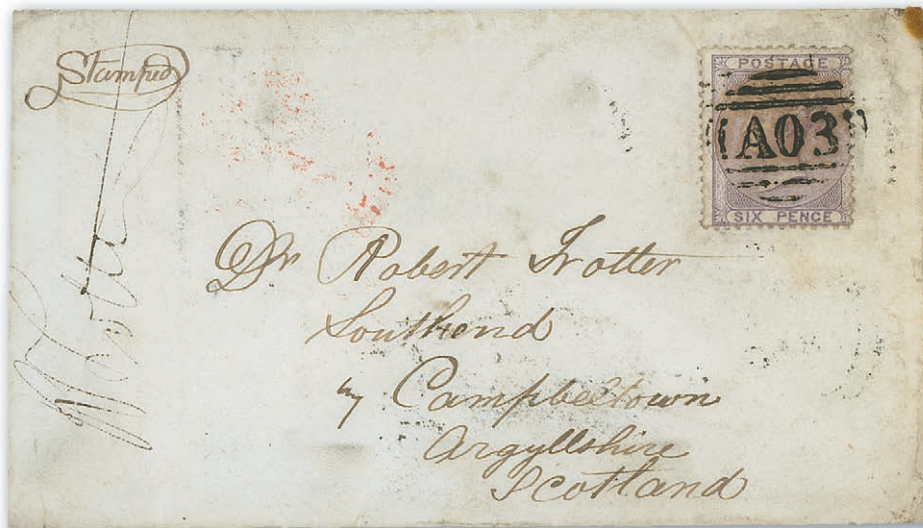 Stamped
POSTAGE
A03
SIX PENCE
Dr Robert Trotter
Southend
by Campbeltown
Argyllshire
Scotland